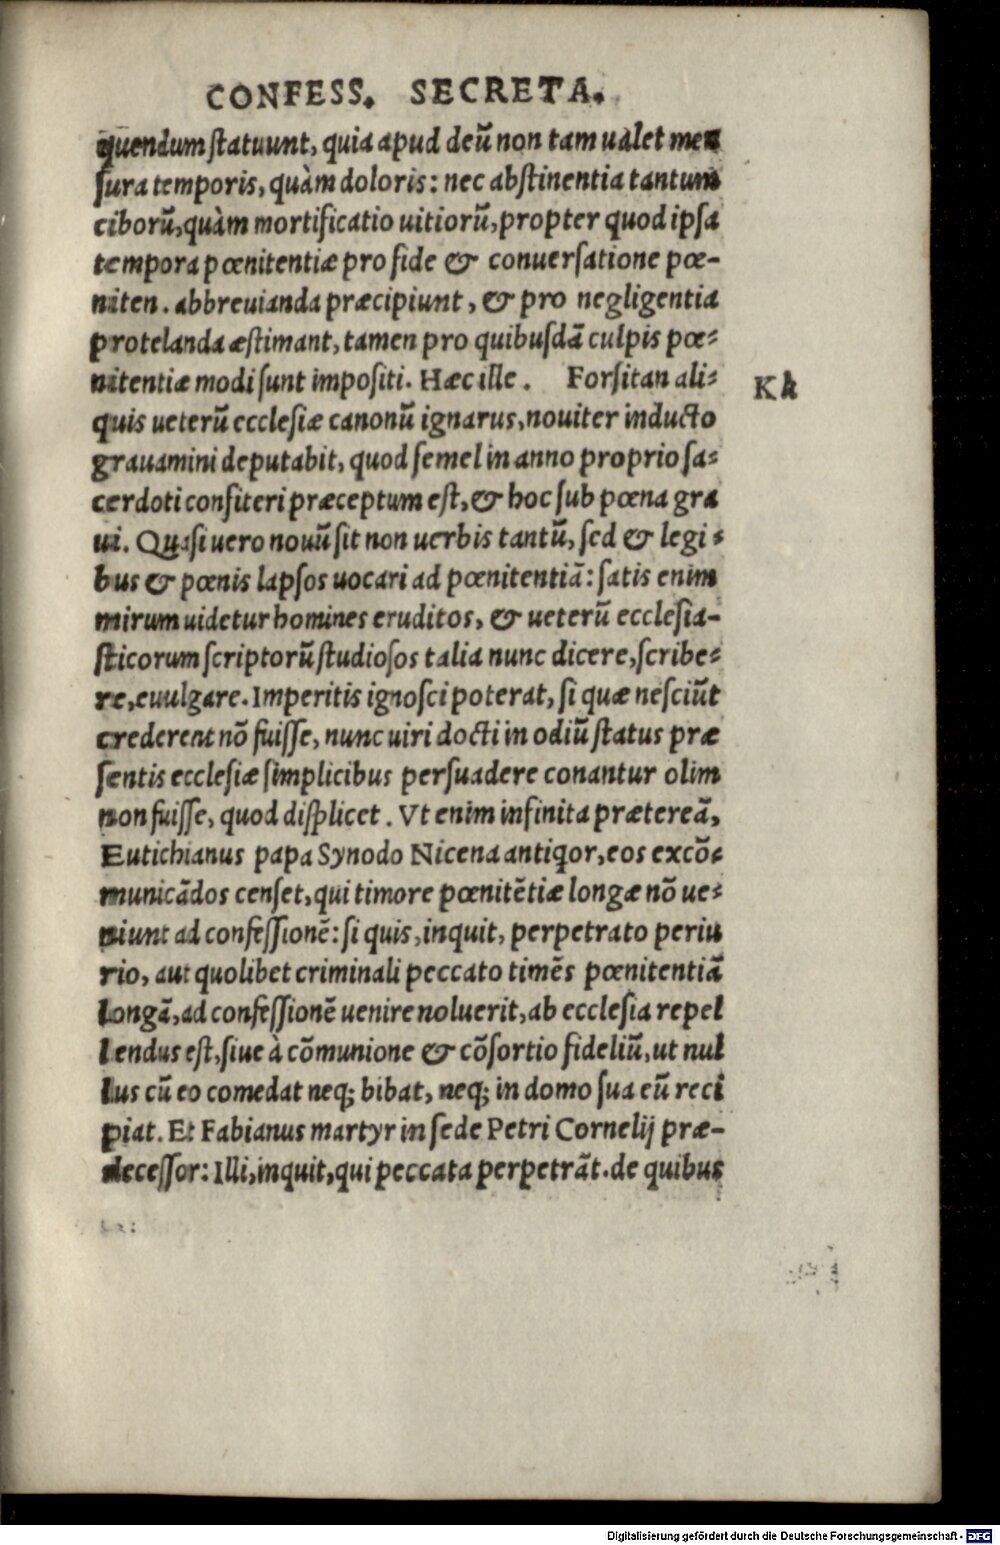 CONFESS. SECRETA.
quendum statuunt, quia apud deũ non tam ualet men
sura temporis, quàm doloris: nec abstinentia tantum
ciborũ, quàm mortificatio uitiorũ, propter quod ipsa
tempora pœnitentiæ pro fide & conuersatione pœ-
niten. abbreuianda præcipiunt, & pro negligentia
protelanda æstimant, tamen pro quibusdã culpis pœ-
nitentiæ modi sunt impositi. Hæc ille. Forsitan ali-
Kk
quis ueterũ ecclesiæ canonũ ignarus, nouiter inducto
grauamini deputabit, quod semel in anno proprio sa-
cerdoti confiteri præceptum est, & hoc sub pœna gra
ui. Quasi uero nouũ sit non uerbis tantũ, sed & legi-
bus & pœnis lapsos uocari ad pœnitentiã: satis enim
mirum uidetur homines eruditos, & ueterũ ecclesia-
sticorum scriptorũ studiosos talia nunc dicere, scribe-
re, euulgare. Imperitis ignosci poterat, si quæ nesciũt
crederent nõ fuisse, nunc uiri docti in odiũ status præ
sentis ecclesiæ simplicibus persuadere conantur olim
non fuisse, quod displicet. Vt enim infinita prætereã,
Eutichianus papa Synodo Nicena antiqor, eos excõ-
municãdos censet, qui timore pœnitẽtiæ longæ nõ ue-
niunt ad confessionẽ: si quis, inquit, perpetrato periu
rio, aut quolibet criminali peccato timẽs pœnitentiã
longã, ad confessionẽ uenire noluerit, ab ecclesia repel
lendus est, siue à cõmunione & cõsortio fideliũ, ut nul
lus cũ eo comedat neq; bibat, neq; in domo sua eũ reci
piat. Et Fabianus martyr in sede Petri Cornelij præ-
decessor: Illi, inquit, qui peccata perpetrãt. de quibus
Digitalisierung gefördert durch die Deutsche Forschungsgemeinschaft - DFG